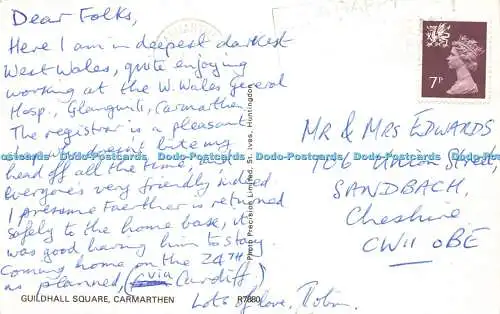 Dear Folks,
Here I am in deepest darkest
West Wales, quite enjoying
working at the W. Wales General
Hosp., Glangwili, Carmarthen.
The registrar is a pleasant
doesn't bite my
head off all the time, and
Everyone's very friendly indeed.
I presume Faerther is returned
safely to the home base, it
was good having him to stay.
Coming home on the 24TH
as planned, (via Cardiff!)
Lots of love, Robin.
MR & MRS EDWARDS
106 Union Street,
SANDBACH,
Cheshire
CW11 0BE
7P
Photo Precision Limited, St. Ives, Huntingdon
GUILDHALL SQUARE, CARMARTHEN R7880
Dodo-Postcards Dodo-Postcards Dodo-Postcards Dodo-Postcards Dodo-Postcards